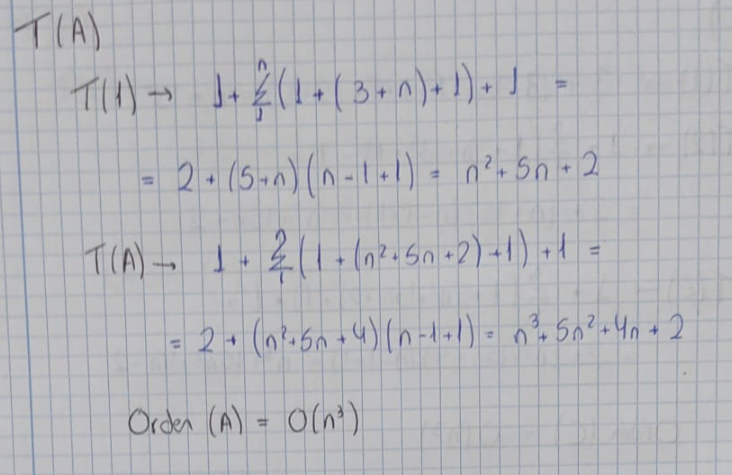 T(A)
T(1) → 1 + Σ₁ⁿ (1 + (3 + n) + 1) + 1 =
= 2 + (5+n) (n - 1 + 1) = n² + 5n + 2
T(A) → 1 + Σ₁ⁿ (1 + (n² + 5n + 2) + 1) + 1 =
= 2 + (n² + 5n + 4) (n - 1 + 1) = n³ + 5n² + 4n + 2
Orden (A) = O(n³)